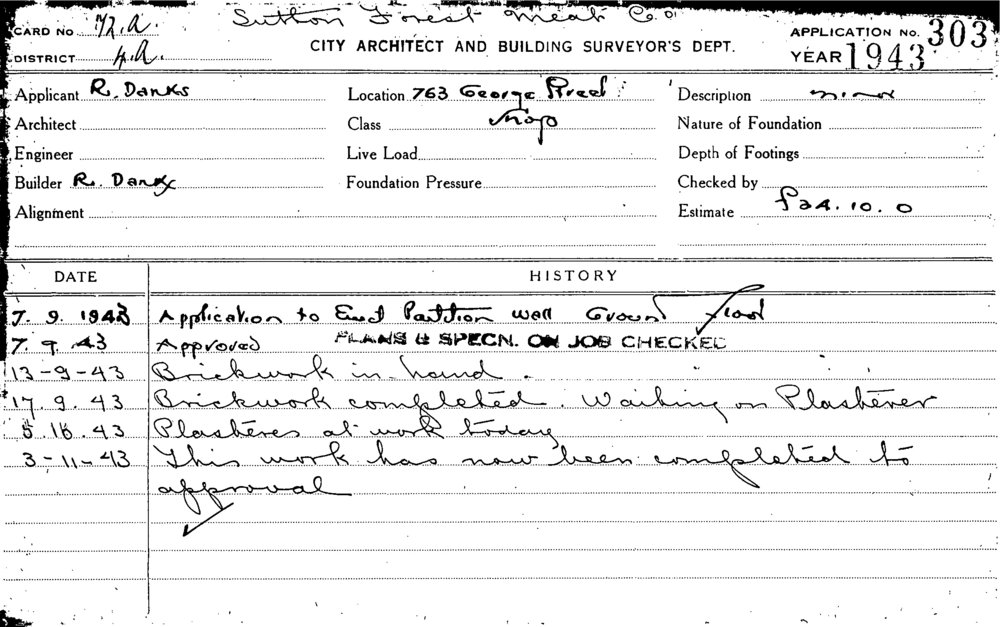 Sutton Forest Meat Co.
CARD No. 72.A.
DISTRICT H.A.
CITY ARCHITECT AND BUILDING SURVEYOR'S DEPT.
APPLICATION No. 303
YEAR 1943
Applicant R. Danks Location 763 George Street Description minor
Architect Class Shop Nature of Foundation
Engineer Live Load Depth of Footings
Builder R. Danks Foundation Pressure Checked by
Alignment Estimate £24.10.0
DATE HISTORY
7. 9. 1943 Application to Erect Partition wall Ground floor
7. 9. 43 Approved PLANS & SPECN. ON JOB CHECKED
13-9-43 Brickwork in hand.
17. 9. 43 Brickwork completed. Waiting on Plasterer
5. 10. 43 Plasteres at work today
3-11-43 This work has now been completed to
approval